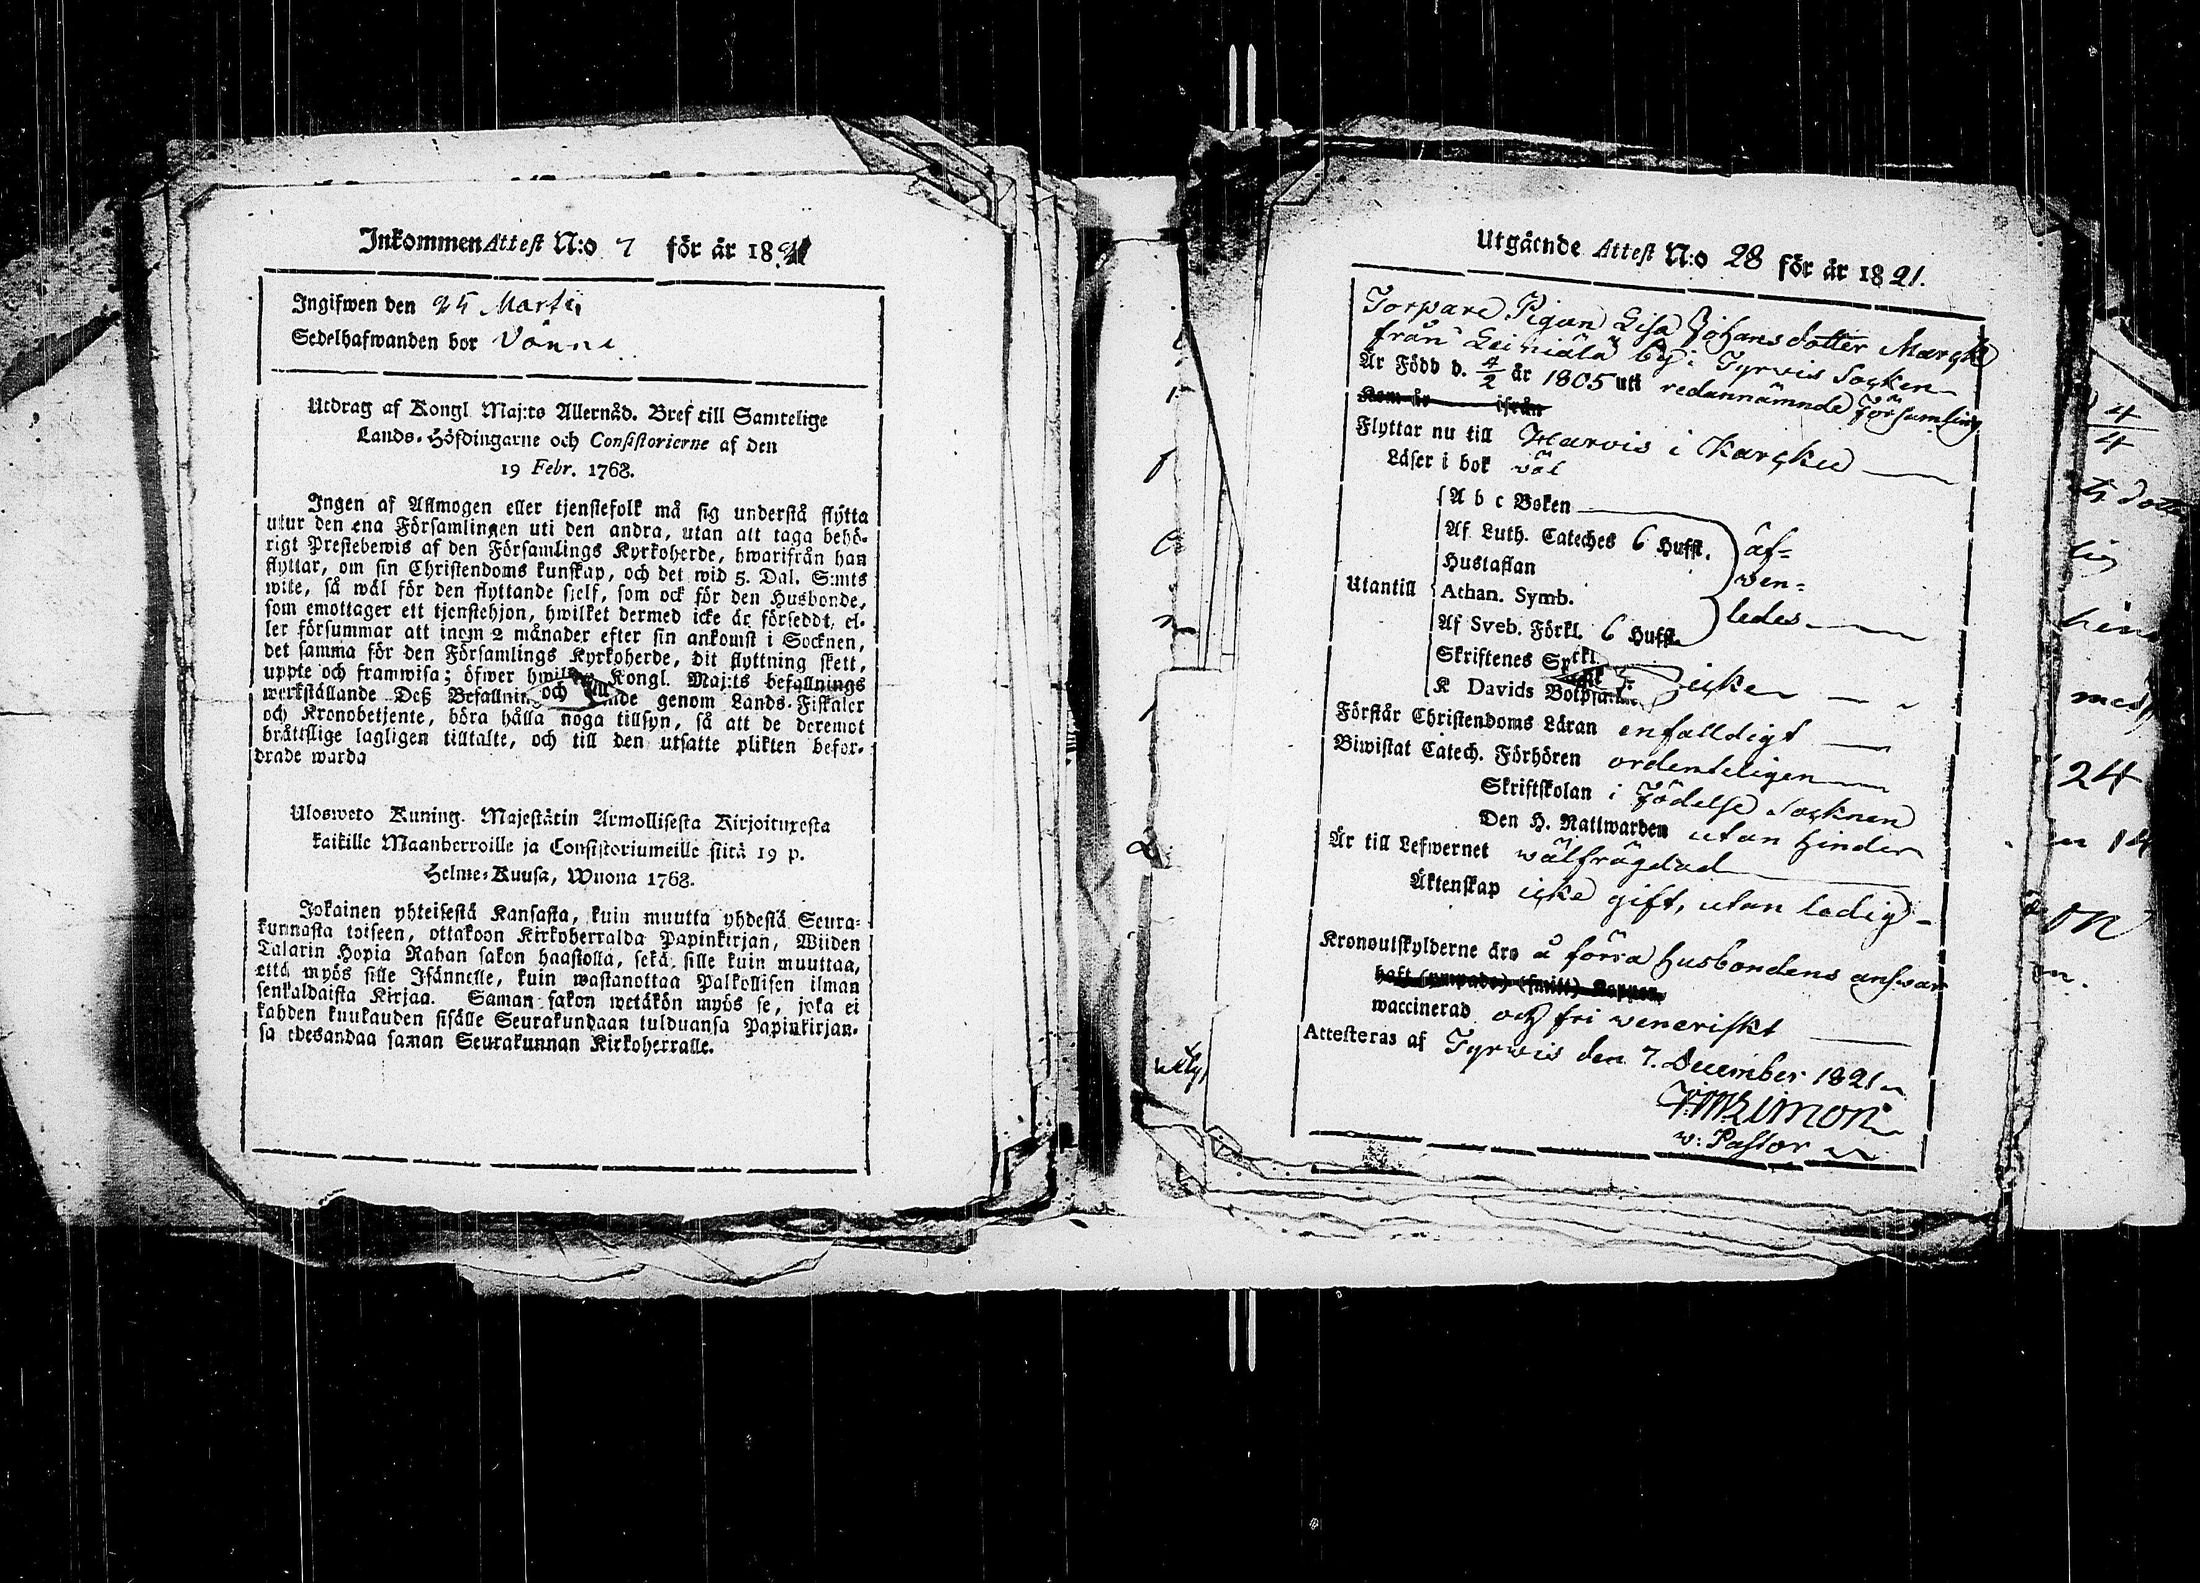 Inkommen Attest N:o 7 för år 18
Ingifwen den 25 Martii
Sedelhafwanden bor Vänni
Utdrag af Kongl Maj:ts Allernåd. Bref till Samtelige
Lands-Höfdingarne och Consistorierne af den
19 Febr. 1768.
Ingen af Allmogen eller tjenstefolk må sig understå flytta
utur den ena Församlingen uti den andra, utan att taga behö-
rigt Prestebewis af den Församlings Kyrkoherde, hwarifrån han
flyttar, om sin Christendoms kunskap, och det wid 5. Dal. S:mts
wite, så wäl för den flyttande sielf, som ock för den Husbonde,
som emottager ett tjenstehjon, hwilket dermed icke är försedt, el-
ler försummar att inom 2 månader efter sin ankomst i Socknen,
det samma för den Församlings Kyrkoherde, dit flyttning skett,
uppte och framwisa; öfwer Kongl. Maj:ts befallnings
werkställande Deß och genom Lands-Fiskaler
och Kronobetjente, böra hålla noga tillsyn, så att de deremot
bråttslige lagligen tilltalte, och till den utsatte plikten befor-
drade warda
Ulosweto Kuning. Majestätin Armollisesta Kirjoituxesta
kaikille Maanherroille ja Consistoriumeille siitä 19 p.
Helme-Kuusa, Wuona 1768.
Jokainen yhteisestä Kansasta, kuin muutta yhdestä Seura-
kunnasta toiseen, ottakoon Kirkoherralda Papinkirjan, Wiiden
Talarin Hopia Rahan sakon haastolla, sekä sille kuin muuttaa,
että myös sille Isännelle, kuin wastanottaa Palkollisen ilman
senkaldaista Kirjaa. Saman sakon wetäkön myös se, joka ei
kahden kuukauden sisälle Seurakundaan tulduansa Papinkirjan-
sa edesandaa saman Seurakunnan Kirkoherralle.
Utgående Attest N:o 28 för år 1821.
Torpare Pigan Lisa Johansdotter
från Leiniälä by i Tyrvis Socken
Är Född d. 4/2 år 1805 uti redannämnde Församling
Kom år ifrån
Flyttar nu till Harvis i Karcku
Läser i bok väl
A b c Boken
Af Luth. Cateches 6 Hufst. äf-
Hustaflan wen-
Utantill Athan. Symb.
Af Sveb. Förkl. 6 Hufst. ledes
Skriftenes
K Davids icke
Förstår Christendoms Läran enfalldigt
Biwistat Catech. Förhören ordenteligen
Skriftskolan i födelse Socknen
Den H. Nattwarden utan hinder
Är till Lefwernet wälfrägdad
Äktenskap icke gift, utan ledig
Kronoutskylderne äro å förra husbondens answar
haft
waccinerad och fri veneriskt
Attesteras af Tyrwis den 7. December 1821
v: Pastor